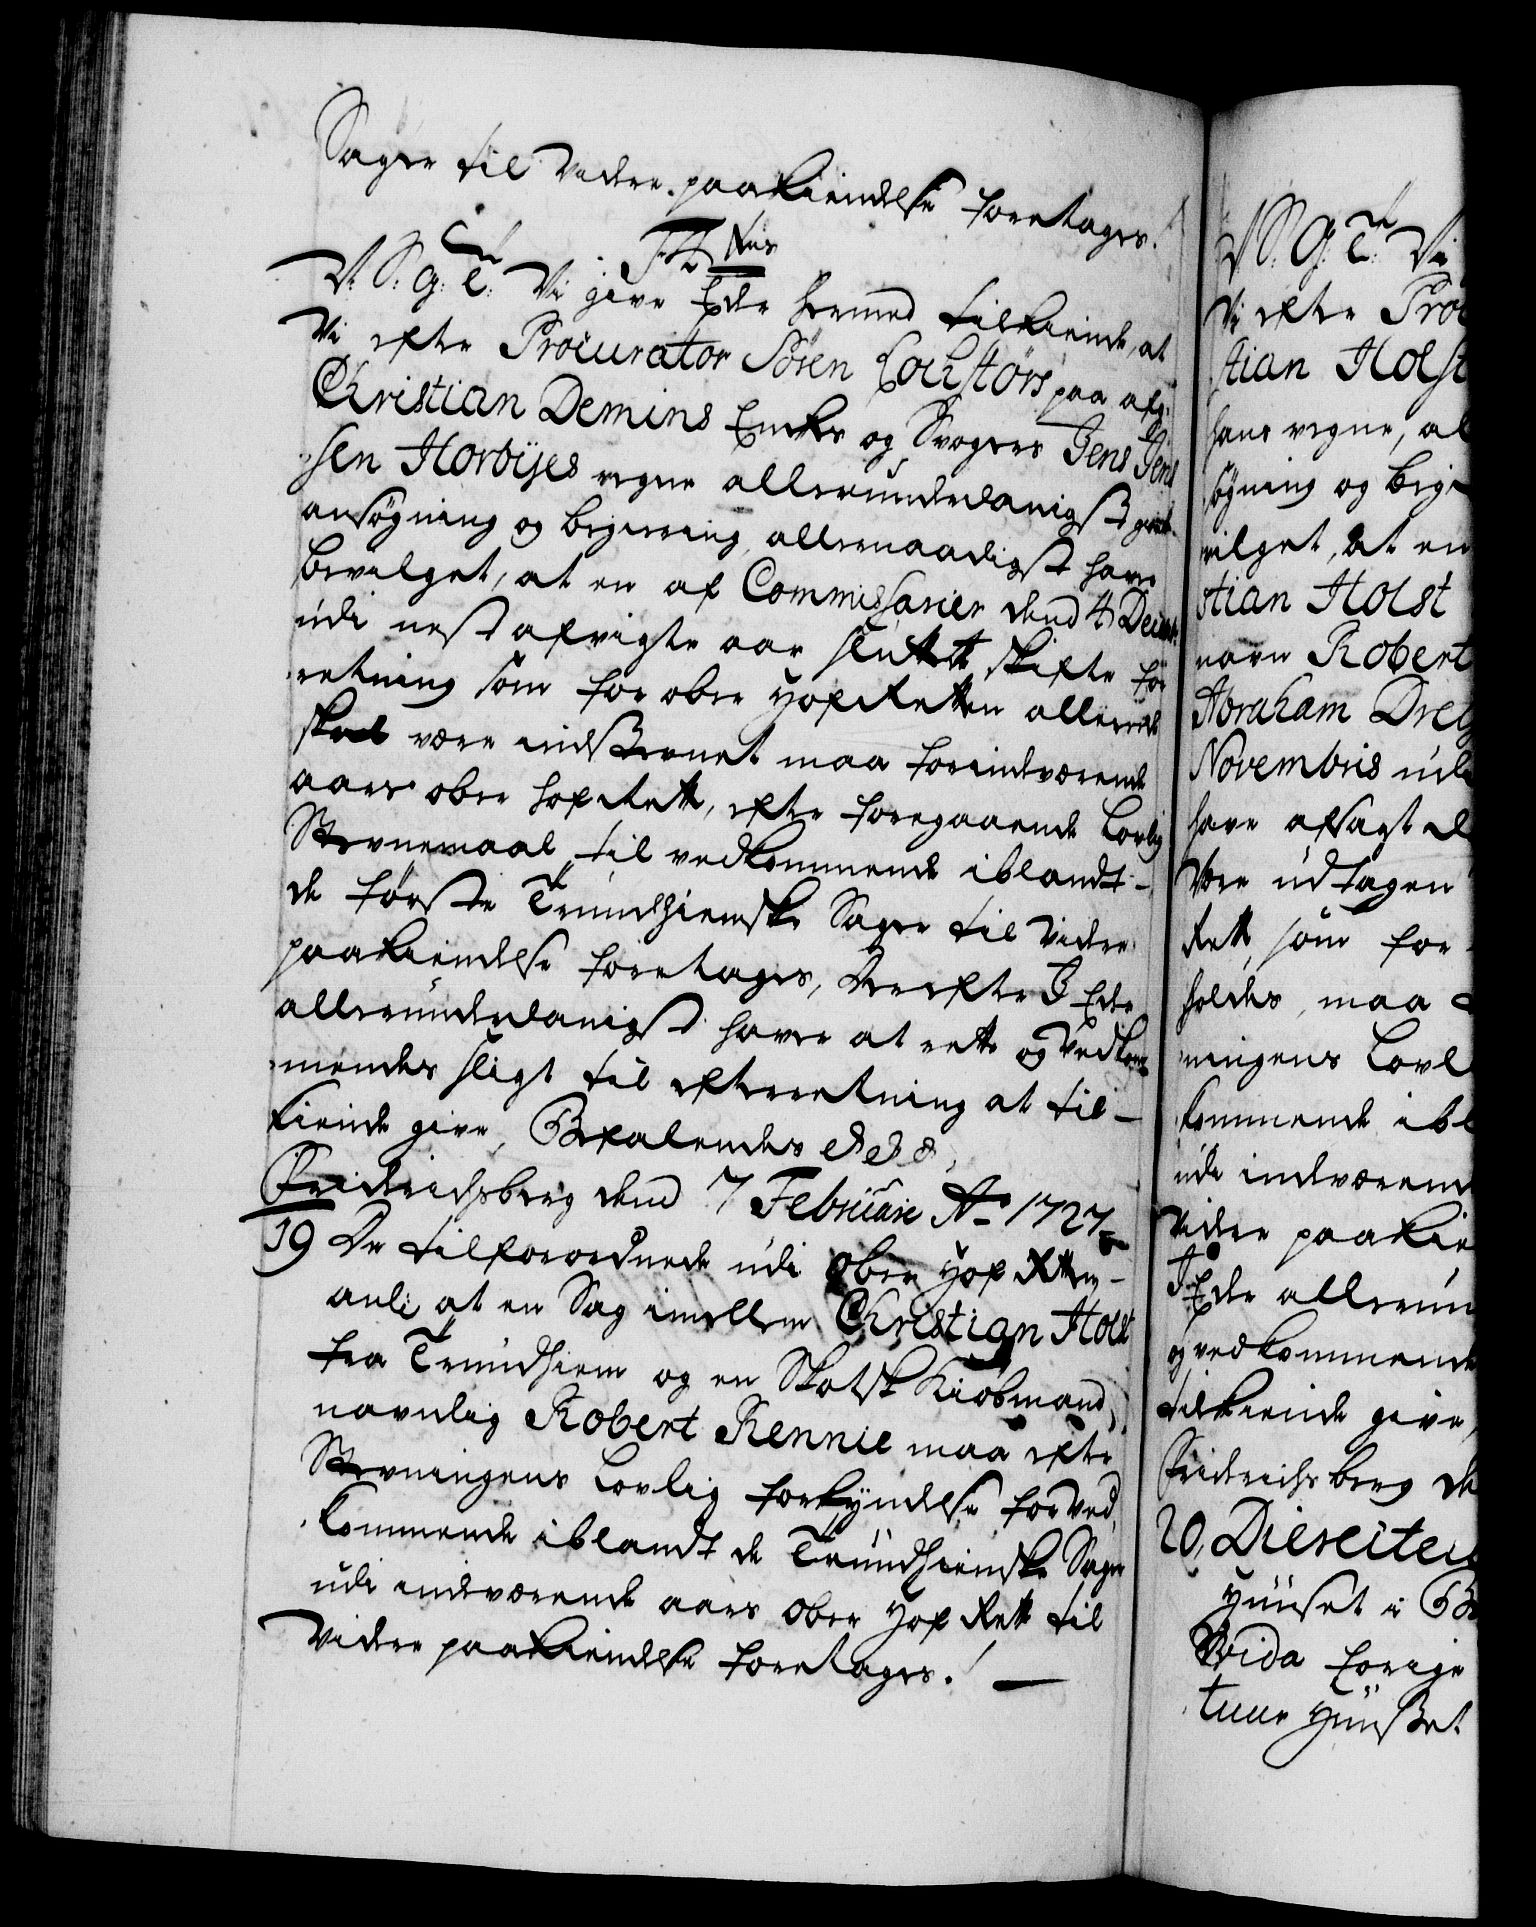 Sager til Videre paakiendelse foretages.
F 4 tus
V. S. G. T. Vi give Eder hermed tilkiende, at
Vi efter Procurator Sören Lochstörs paa afg:
Christian Demins Enkes og Svogers Jens Jens
sen Horbÿes vegne allerunderdanigst giorte
ansøgning og begiering, allernaadigst haver
bevilget, at en af Commissarier dend 4 Decemb:
udi nest afvigte aar sluttet skifte for
retning som for ober Hof Retten allerede
skal være indstevnet maa for indværende
aars ober hof Rett, efter foregaaende Lovlig
Stevnemaal til vedkommende iblandt
de første Trundhiemske Sager til Videre
paakiendelse foretages, Derefter I Eder
allerunderdanigst haver at rette og Vedkom
mendes sligt til efterretning at til-
kiende give, Befalendes etc
Friderichsberg dend 7 Februarii Ao 1727
19 De tilforordnede udi Ober Hof Retten
anl: at en Sag imellem Christian Holst
fra Trundhiem og en Skotsk Kiøbmand,
navnlig Robert Rennie maa efter
Stevningens Lovlig forkyndelse for ved
kommende iblandt de Trundhiemske Sager
udi indværende aars Ober Hof Rett til
Videre paakiendelse foretages.
V. S. G. T. Vi
Vi efter Proc
stian Holst
hans vegne, al
søgning og begi
vilget, at en
stian Holst
navn Robert
Abraham Drey
Novembris udi
have afsagt d
Være udtagen
Rett, som for
holdes, maa
ningens Lovl
kommende ibl
udi indværend
Videre paakie
I Eder allerun
og vedkommende
tilkiende give,
Friderichsberg de
20, Dieseiten
Huuset i B
Vida forige
tuur Huuset